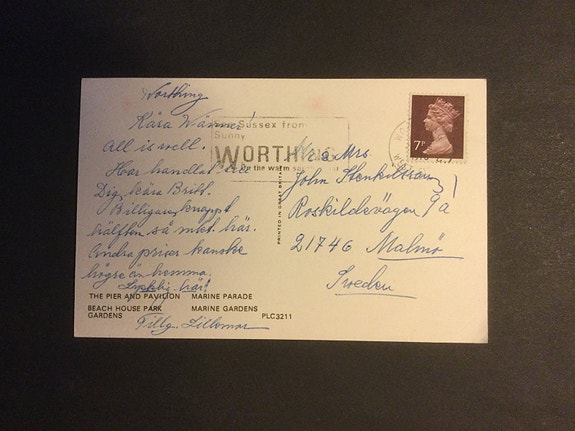 Worthing
Kära Vänner!
All is well.
Har handlat
Dig, kära Britt.
Billigare, knappt
hälften så mkt. här.
Andra priser kanske
högre än hemma.
här!
THE PIER AND PAVILION MARINE PARADE
BEACH HOUSE PARK MARINE GARDENS
GARDENS PLC3211
Lillemor
Sussex from
Sunny
WORTHING
on the warm
PRINTED IN GREAT BRITAIN
7P
Mr & Mrs.
John
Roskildevägen 9a
21746 Malmö
Sweden